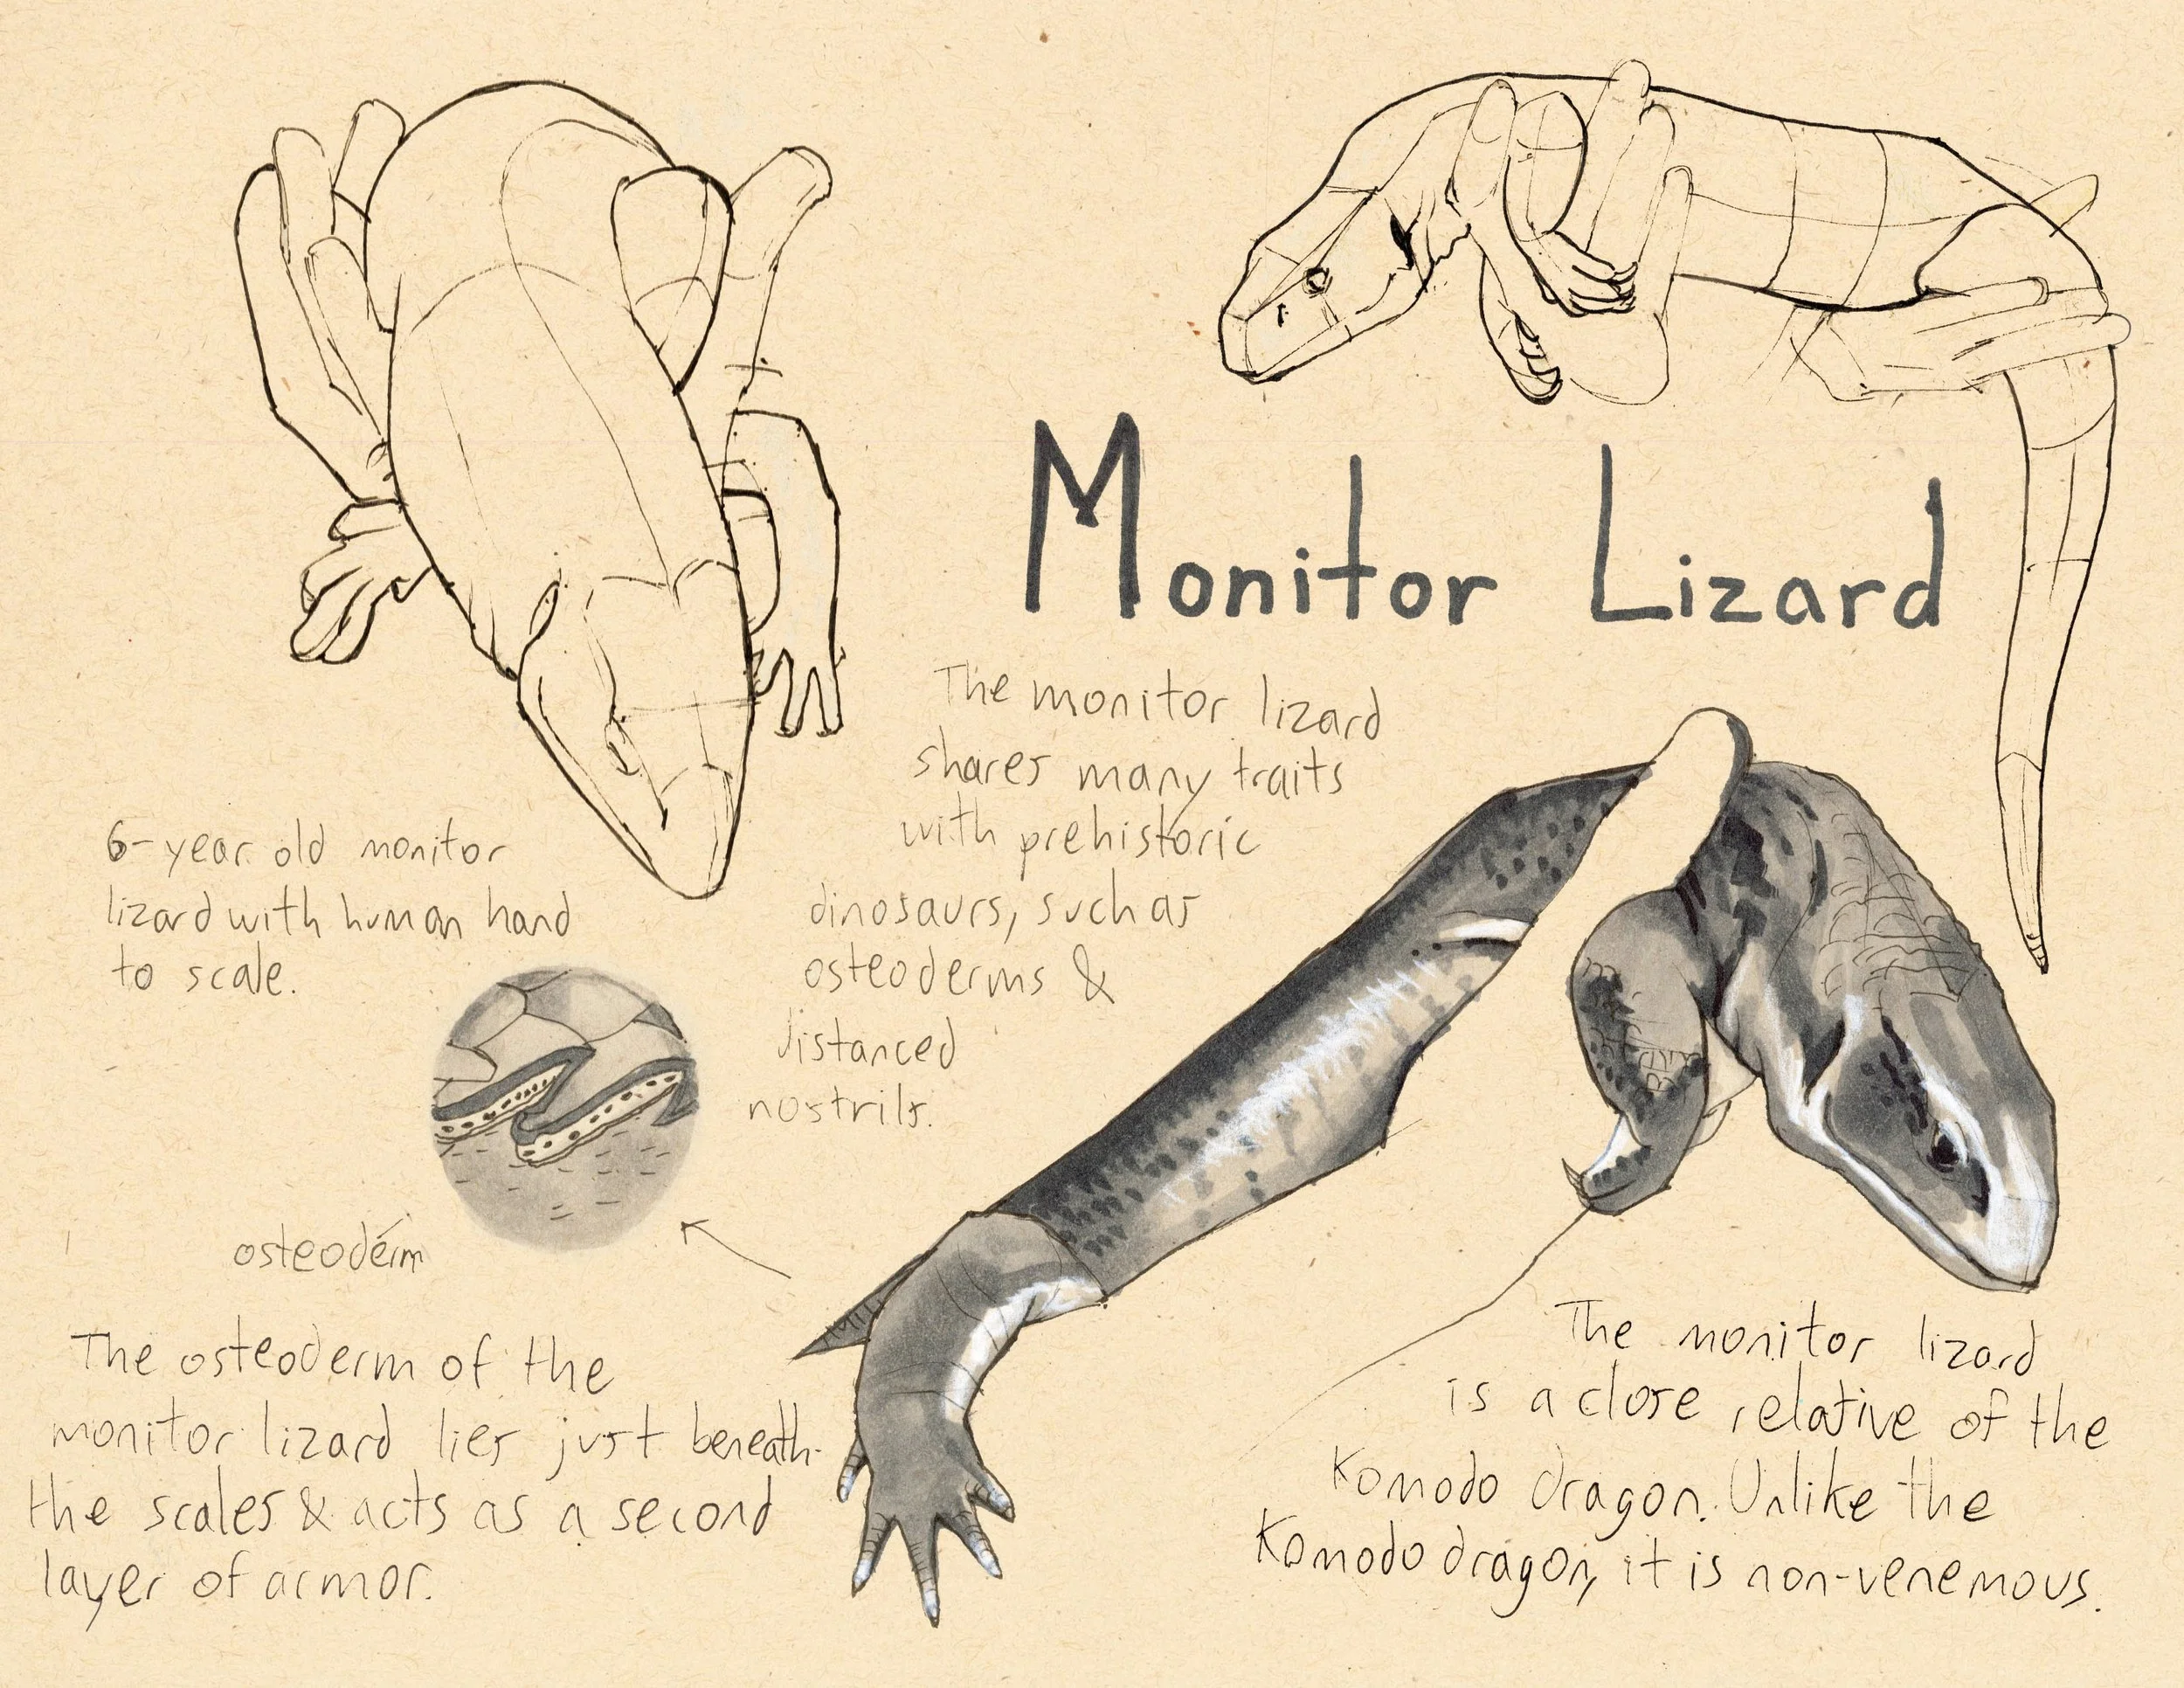 Monitor Lizard
The monitor lizard
shares many traits
with prehistoric
dinosaurs, such as
osteoderms &
distanced
nostrils.
6-year old monitor
lizard with human hand
to scale.
osteoderm
The osteoderm of the
monitor lizard lies just beneath
the scales & acts as a second
layer of armor.
The monitor lizard
is a close relative of the
Komodo dragon. Unlike the
Komodo dragon, it is non-venemous.